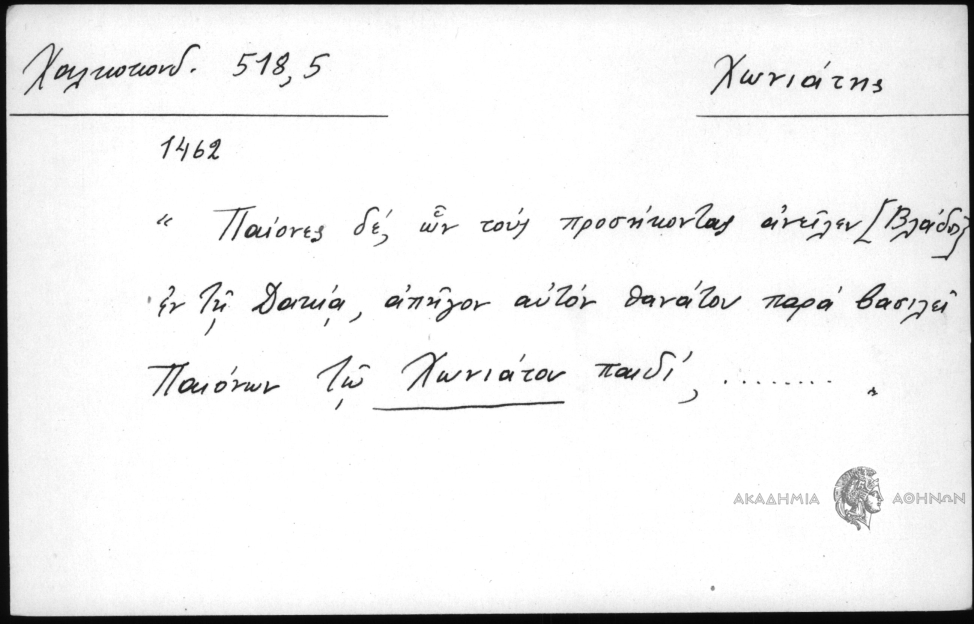 Χαλκοκονδ. 518,5
Χωνιάτης
1462
“ Παίονες δέ, ὧν τούς προσήκοντας ἀνεῖλεν [Βλάδος]
ἐν τῇ Δακίᾳ, ἀπῆγον αὐτόν θανάτου παρά βασιλεῖ
Παιόνων τῷ Χωνιάτου παιδί, ........ „
ΑΚΑΔΗΜΙΑ ΑΘΗΝΩΝ